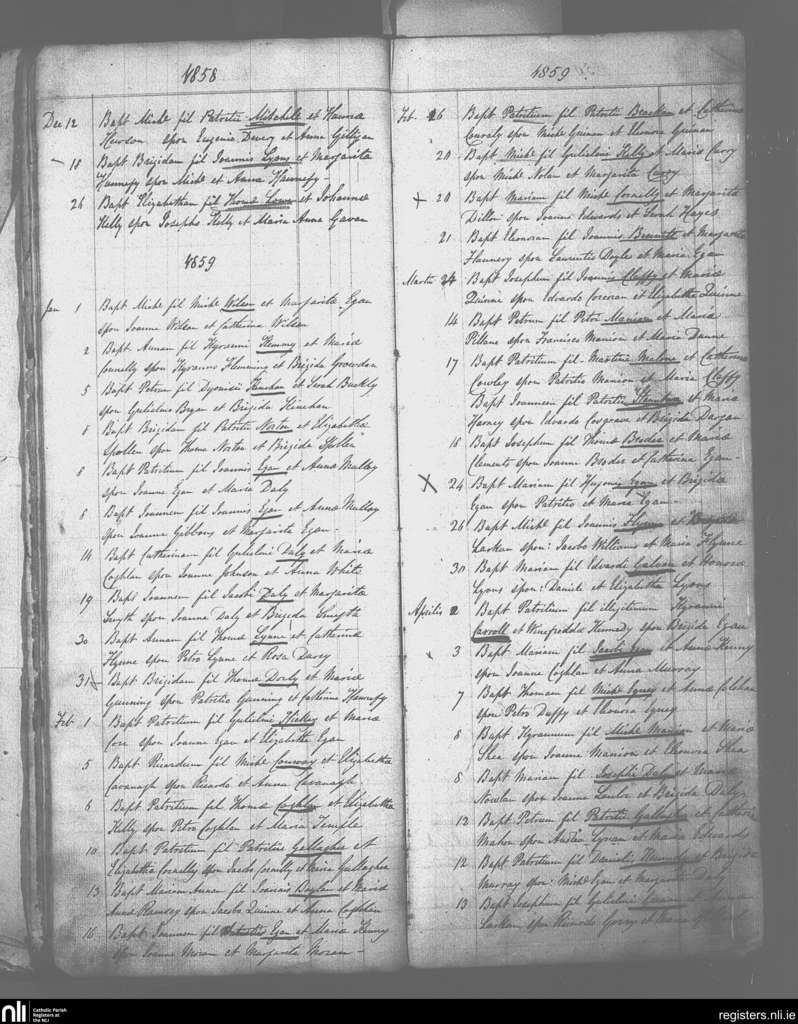 1858
Dec 12 Bapt Mich fil Patritii Mitchell et Honora
Hewson spon Eugenio Devery et Anna Gilligan
18 Bapt Brigidam fil Joannis Lyons et Margarita
spon Mich et Anna
26 Bapt Elizabetham fil Thoma et Johanna
Kelly spon Josepho Kelly et Maria Anna Gavan
1859
Jan 1 Bapt Mich fil Mich Wilson et Margarita Egan
spon Joanne Wilson et Catherina Wilson
2 Bapt Annam fil Kyrani et Maria
Connelly spon Kyranno Flemming et Brigida
5 Bapt Petrum fil Dyonisii et Sarah Buckly
spon Gulielmo Bryan et Brigida
8 Bapt Brigidam fil Patritii Norton et Elizabetha
Spollen spon Thoma Norton et Brigida Spollen
8 Bapt Patritium fil Joannis Egan et Anna Mulloy
spon Joanne Egan et Maria Daly
8 Bapt Joannem fil Joannis Egan et Anna Mulloy
spon Joanne Gibbons et Margarita Egan
14 Bapt Catherinam fil Gulielmi Daly et Maria
Coghlan spon Joanne Johnson et Anna White
19 Bapt Joannem fil Jacobi Daly et Margarita
Smyth spon Joanne Daly et Brigida Smyth
30 Bapt Annam fil Thoma Lyane et Catherina
Flynne spon Petro Lyane et Rosa Davey
31 Bapt Brigidam fil Thoma Dorly et Maria
Gunning spon Patritio Gunning et Catherina
Feb 1 Bapt Patritium fil Gulielmi Skelley et Maria
Core spon Joanne Egan et Elizabetha Egan
5 Bapt Ricardum fil Mich Conway et Elizabetha
Cavanagh spon Ricardo et Anna Cavanagh
6 Bapt Patritium fil Thoma Coghlan et Elizabetha
Kelly spon Petro Coghlan et Maria Temple
10 Bapt Patritium fil Patritii Gallagher et
Elizabetha Connelly spon Jacobo Connelly et Maria Gallagher
13 Bapt Mariam Annam fil Joannis Boylan et Maria
Anna Ramsey spon Jacobo Quinne et Anna Coghlan
16 Bapt Joannem fil Patritii Egan et Maria Kenny
spon Joanne Moran et Margarita Moran
1859
Feb 16 Bapt Patritium fil Patritii Bracken et Catherina
Conroly spon Mich Guinan et Elenora Guinan
20 Bapt Mich fil Gulielmi Kelly et Maria Corry
spon Mich Nolan et Margarita Corry
+ 20 Bapt Mariam fil Mich Connelly et Margarita
Dillon spon Joanne Edwards et Sarah Hayes
21 Bapt Elenoram fil Joannis Bennett et Margarita
Flannery spon Laurentio Doyle et Maria Egan
Martii Bapt Josephum fil Joannis Claffy et Maria
Quinne spon Edvardo Corcoran et Elizabetha Quinne
14 Bapt Petrum fil Petri Manion et Maria
Pillane spon Francisco Manion et Maria Dunne
17 Bapt Patritium fil Martini Malone et Catherina
Cowley spon Patritio Manion et Maria Claffy
Bapt Joannem fil Patritii et Maria
Harney spon Edvardo Cosgrave et Brigida Dargan
18 Bapt Josephum fil Thoma Brodes et Maria
Clements spon Joanne Brodes et Catherina Egan
X 24 Bapt Mariam fil Hugonis Egan et Brigida
Egan spon Patritio et Maria Egan
26 Bapt Mich fil Joannis Flynne et
Larkan spon: Jacobo Williams et Maria Flynne
30 Bapt Mariam fil Edvardi Galvan et Honora
Lyons spon: Daniele et Elizabetha Lyons
Aprilis 2 Bapt Patritium fil illegitimum Kyranni
Carroll et Winefrida Kennedy spon Brigida Egan
3 Bapt Mariam fil Jacobi Egan et Anna Kenny
spon Joanne Coghlan et Anna Murray
7 Bapt Thomam fil Mich Egney et Anna Colahan
spon Petro Duffy et Elenora Egney
8 Bapt Kyrannum fil Mich Manion et Maria
Shea spon Joanne Manion et Elenora Shea
8 Bapt Mariam fil Josephi Daly et Maria
Nowlan spon Joanne et Brigida Daly
12 Bapt Petrum fil Patritii Gallagher et Catherina
Mahon spon et Maria Edwards
12 Bapt Patritium fil Danielis Kennedy et Brigida
Murray spon: Mich Egan et Margarita Daly
13 Bapt Josephum fil Gulielmi et
Larkan spon Ricardo Gorry et
nli
Catholic Parish
Registers at
the NLI
registers.nli.ie